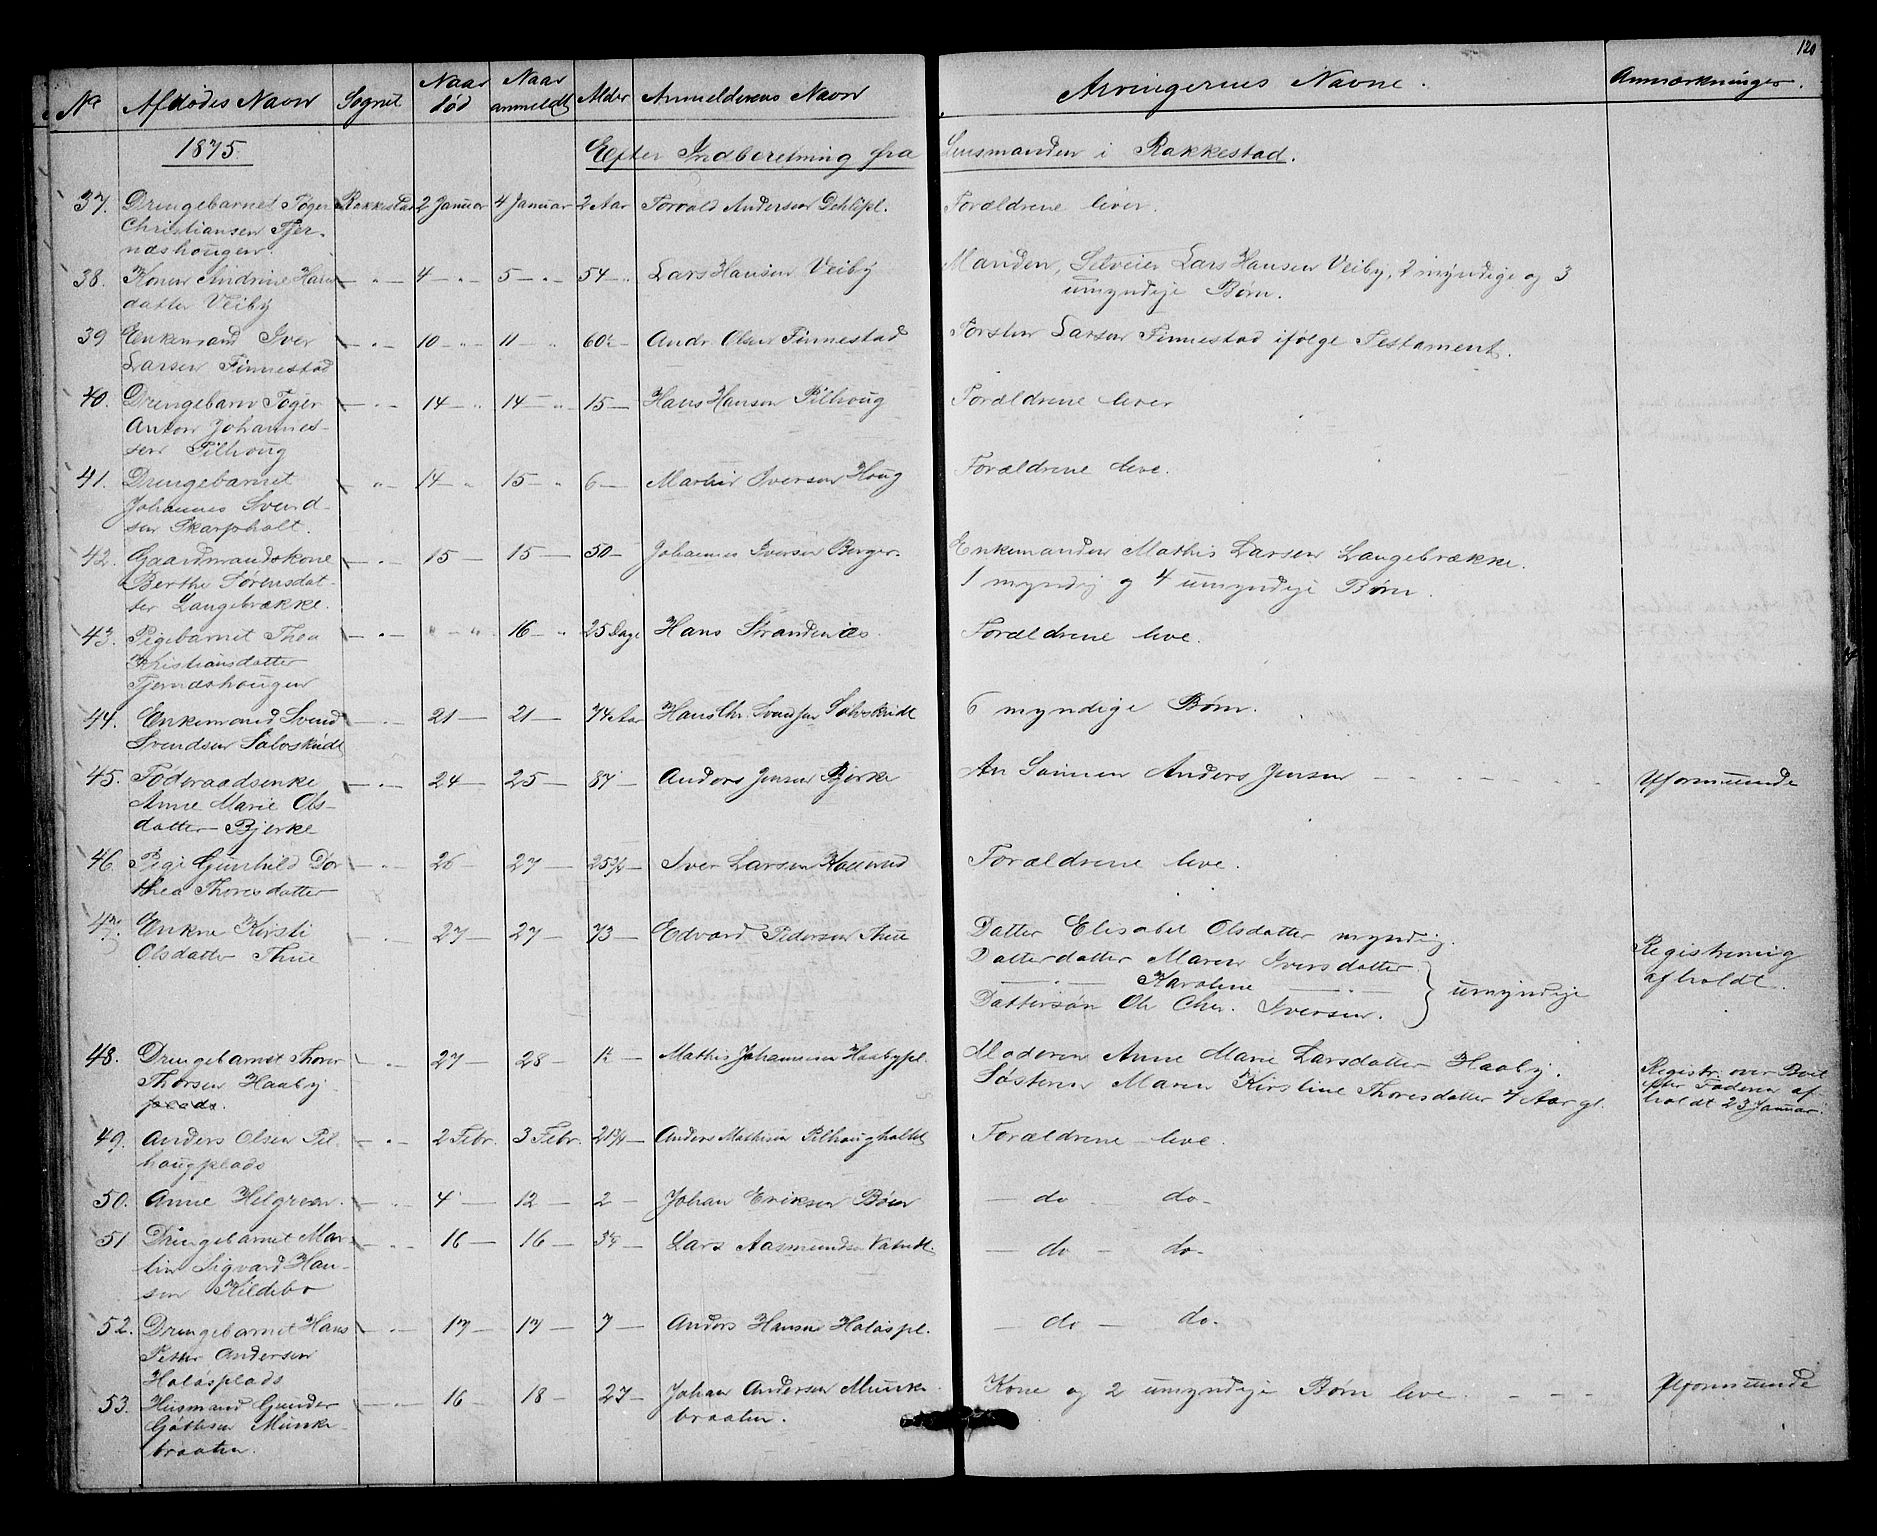 120
No Afdødes Navn Sognet Naar død Naar anmeldt Alder Anmelderens Navn Arvingernes Navne. Anmærkninger.
1875. Efter Indberetning fra Lensmanden i Rakkestad.
37. Drengebarnet Toger Rakkestad 2 Januar 4 Januar 2 Aar Torvald Andersen Foræeldrene lever.
Christiansen Tjer-
næshougen.
38. Konen Andrine Hans- — " — 4 — " — 5 — " — 54 — " Lars Hansen Veiby Manden, Selveier Lars Hansen Veiby, 2 myndige og 3
datter Veiby umyndige Børn.
39 Enkemand Iver — " — 10 — " — 11 — " 60 — Andr. Olsen Finnestad Torsten Larsen Finnestad ifølge Testament.
Larsen Finnestad
40. Drengebarn Toger — " — 14 — " 14 — " 15 — Hans Hansen Pilhoug Forældrene lever
Anton Johannes-
sen Pilhoug
41. Drengebarnet — " — 14 — " 15 — " 6 — Martin Iversen Houg Forældrene leve.
Johannes Svend-
sen Skarpholt.
42. Gaardmandskone — " — 15 — 15 — 50 — Johannes Iversen Berger. Enkemanden Mathis Larsen Langebrække.
Berthe Sørensdat- 1 myndig og 4 umyndige Børn.
ter Langebrække.
43. Pigebarnet Thea — " — " — " 16 — " 25 Dage Hans Strandenæs. Forældrene leve.
Kristiansdatter
Tjernæshougen
44. Enkemand Svend — " — 21 — 21 — 74 Aar Hans Chr. Svendsen 6 myndige Børn.
Svendsen
45. Føderaadsenke — " — 24 — 25 — 87 — Anders Jensen Bjerke An Sønnen Anders Jensen — Uformuende
Anne Marie Ols-
datter Bjerke
46. Pige Gunhild Dor- — " — 26 — 27 — Iver Larsen Forældrene leve.
thea Thoresdatter
47. Enken Kirsti — " — 27 — 27 — 73 — Edvard Pedersen Thue Datter Elisabet Olsdatter myndig.
Olsdatter Thue Datterdatter Maren Iversdatter. Registrering
— " — Karoline — " — umyndige afholdt.
Dattersøn Ole Chr. Iversen.
48. Drengebarnet Thore — " — 27 — 28 — Mathis Johannesen Haabypl. Moderen Anne Marie Larsdatter Haaby. Registr. over Boet
Thorsen Haaby- Søsteren Maren Kirstine Thoresdatter 7 Aar gl. efter Faderen af-
plads. holdt 23 Januar.
49. Anders Olsen Pil- — " — 2 Febr. 3 Febr. 21 Anders Mathisen Pilhougholtet Forældrene leve.
hougplads
50. Anne Helgesen. — " — 4 — 12 — 2 — Johan Eriksen Bøen — do — do —
51 Drengebarnet Mar- — " — 16 — 16 — Lars Aasmundsen — do — do —
tin Sigvard Han-
sen Kildebo
52. Drengebarnet Hans — " — 17 — 17 — 7 — Anders Hansen Holaspl. — do — do —
Petter Andersen
Holasplads
53. Husmand Gunder — " — 16 — 18 — 27 — Johan Andersen Munke- Kone og 2 umyndige Børn leve. — Uformuende
Munke- braaten.
braaten.